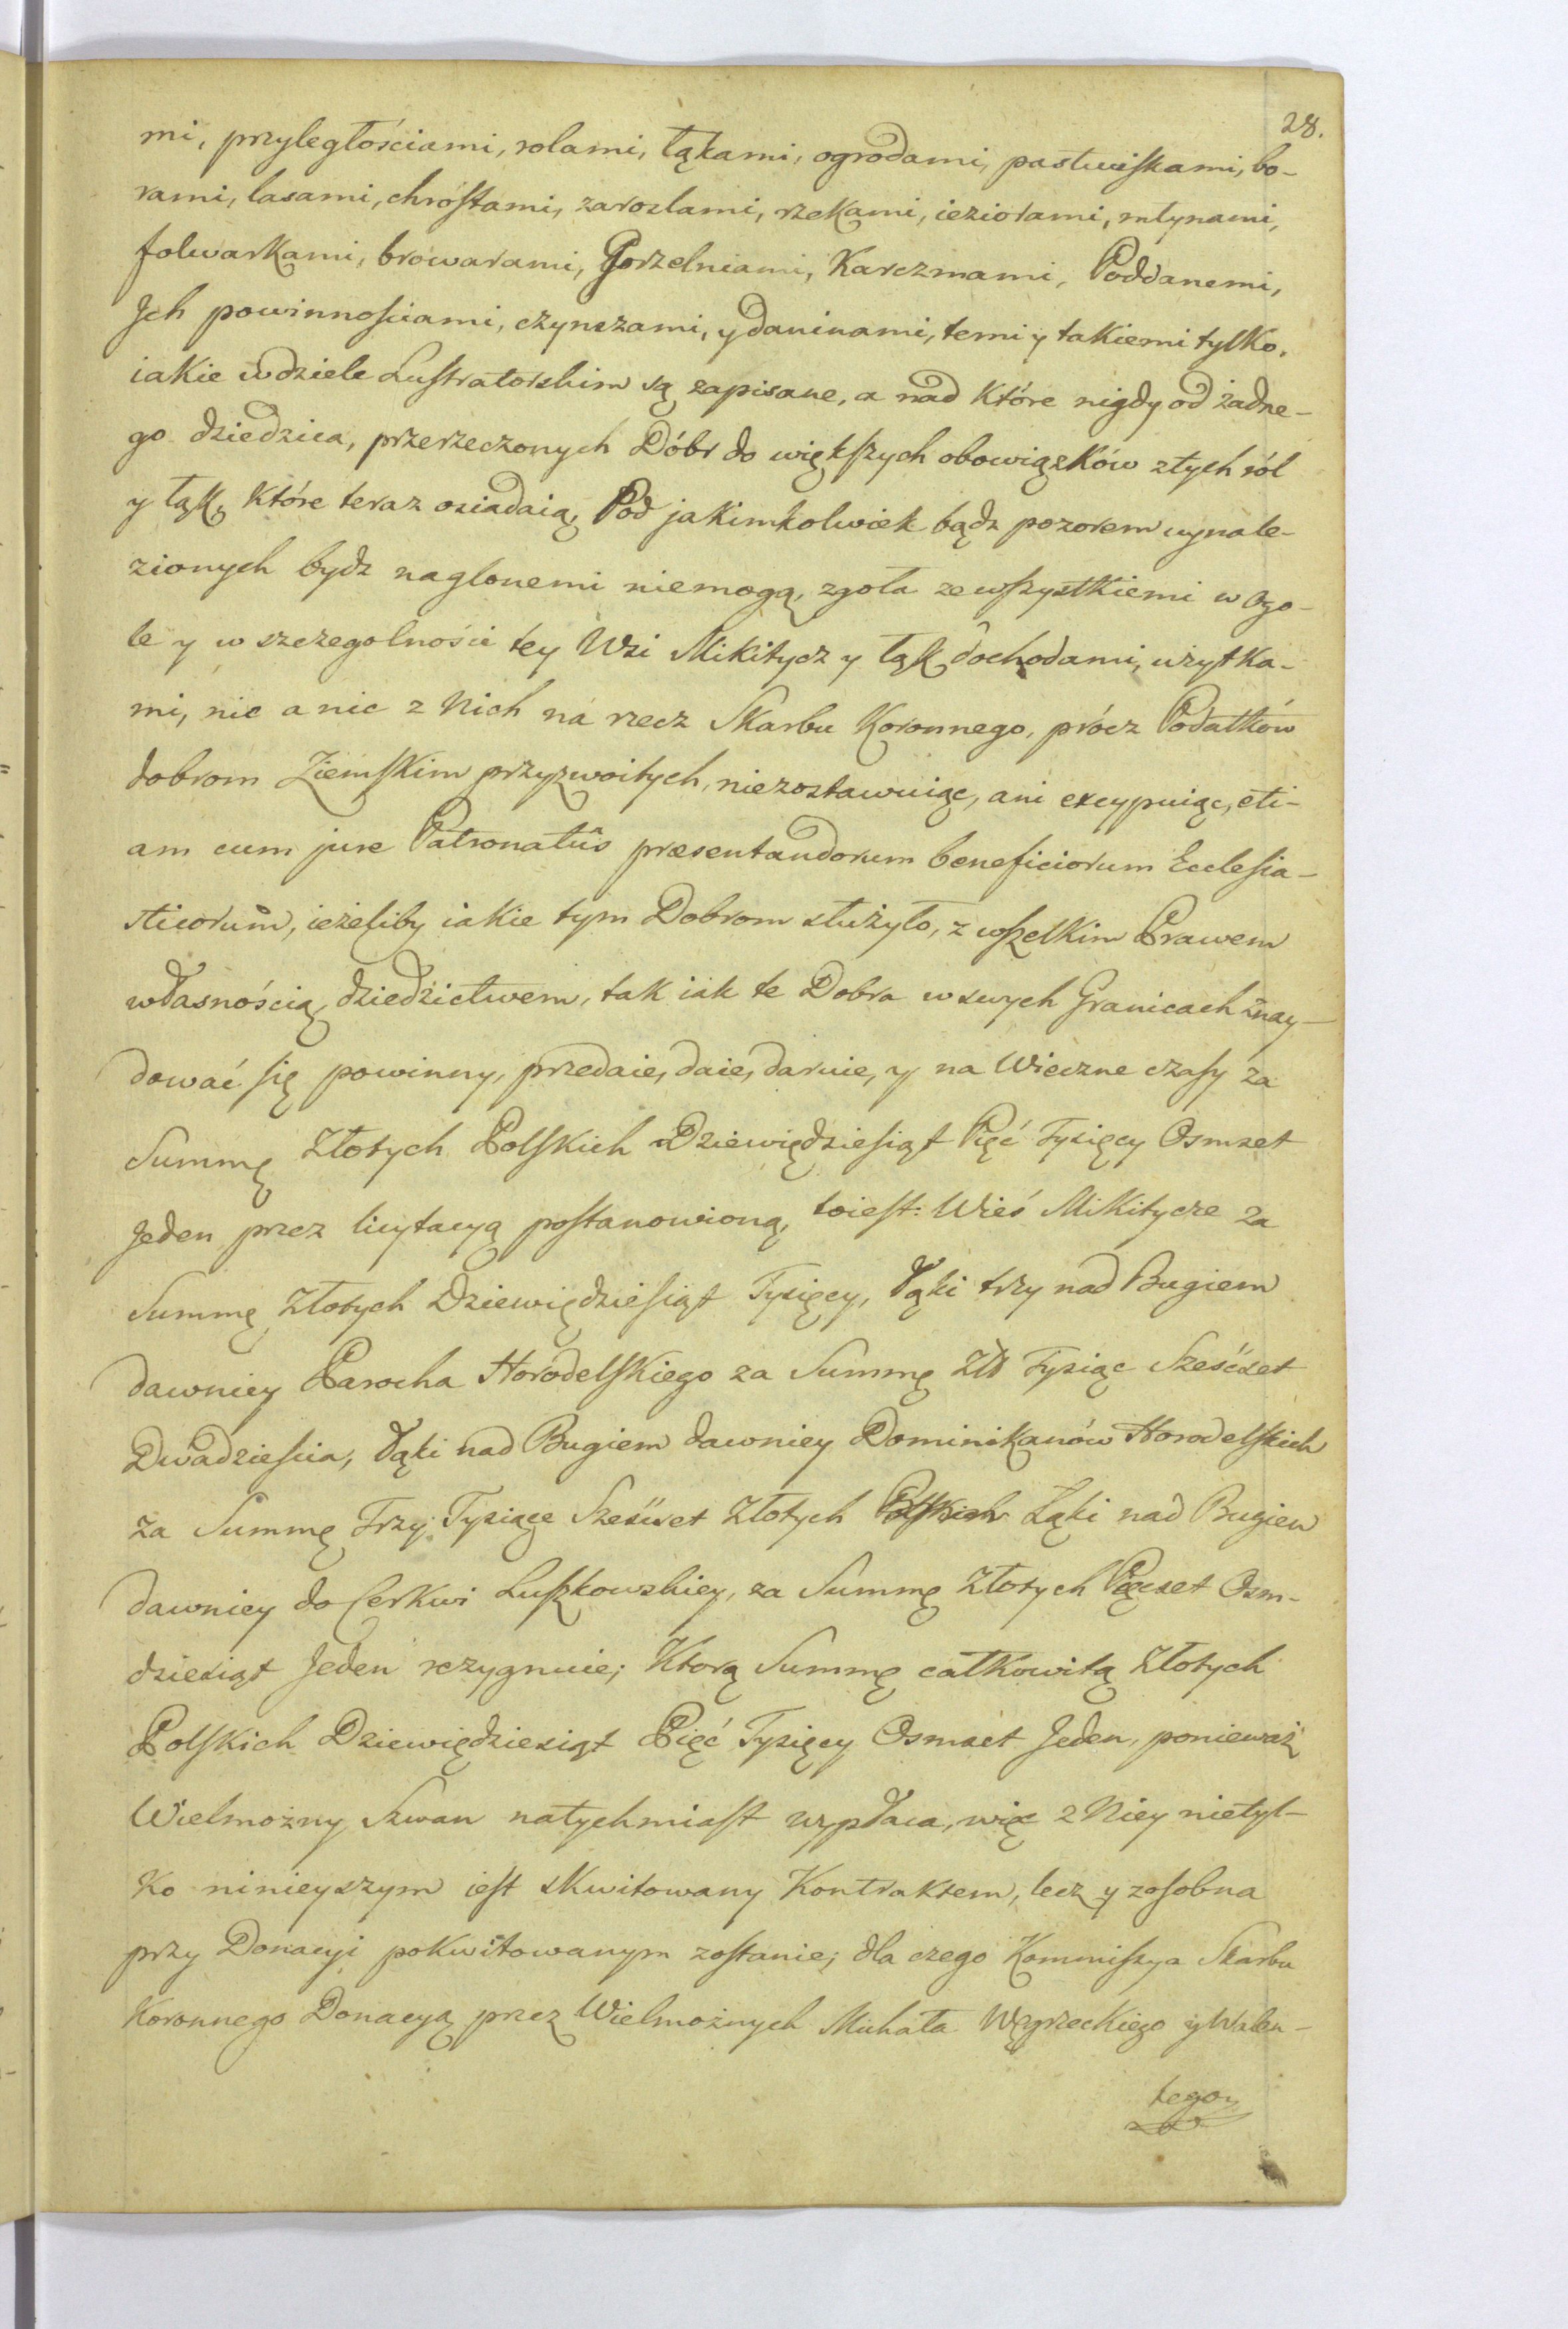 28.
mi, przyległościami, rolami, łąkami, ogrodami, pastwiskami, bo-
rami, lasami, chrostami, zaroslami, rzekami, ieziorami, młynami,
folwarkami, browarami, Gorzelniami, Karczmami, Poddanemi,
Jch powinnosciami, czynszami, y daninami, temi y takiemi tylko,
iakie w dziele Lustratorskim są zapisane, a nad które nigdy od żadne-
go dziedzica, przerzeczonych Dóbr do większych obowiązków z tych ról
y łąk, które teraz osiadaią, Pod jakimkolwiek bądz pozorem wynale-
zionych bydz naglonemi niemogą, zgoła ze wszystkiemi w Ogo-
le y w szczegolności tey Wsi Mikitycz y łąk dochodami, użytka-
mi, nic a nic z Nich na rzecz Skarbu Koronnego, prócz Podatków
dobrom Ziemskim przyzwoitych, niezostawuiąc, ani excypuiąc, eti-
am cum jure Patronatûs præsentandorum beneficiorum Ecclesia-
sticorum, ieżeliby iakie tym Dobrom służyło, z wszelkim Prawem
własnością, dziedzictwem, tak iak te Dobra w swych Granicach znay-
dować się powinny, przedaie, daie, daruie, y na Wieczne czasy za
Summę Złotych Polskich Dziewiędziesiąt Pięć Tysięcy Osmset
Jeden przez licytacyą postanowioną, toiest: Wieś Mikitycze za
Summę Złotych Dziewiędziesiąt Tysięcy, Łąki trzy nad Bugiem
dawniey Parocha Horodelskiego za Summę Złł Tysiąc Sześćset
Dwadziescia, Łąki nad Bugiem dawniey Dominikanów Horodelskich
za Summę Trzy Tysiące Sześćset Złotych Polskich Łąki nad Bugiem
dawniey do Cerkwi Luszkowskiey, za Summę Złotych Pięcset Osm-
dziesiąt Jeden rezygnuie; Ktorą Summę całkowitą Złotych
Polskich Dziewiędziesiąt Pięć Tysięcy Osmset Jeden, ponieważ
Wielmożny Szwan natychmiast wypłaca, więc z Niey nietyl-
ko ninieyszym iest skwitowany Kontraktem, lecz y zosobna
przy Donacyi pokwitowanym zostanie; dla czego Kommissya Skarbu
Koronnego Donacyą przez Wielmożnych Michała Węgrzeckiego y Walen-
tego